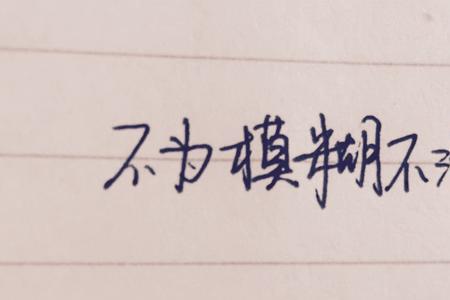 不为模糊不